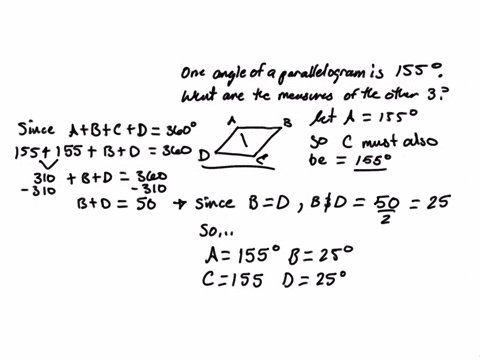 One angle of a parallelogram is 155°.
What are the measures of the other 3?
let A = 155°
so C must also
be = 155°
A B
D C
Since A+B+C+D = 360°
155+155+B+D = 360
310 + B+D = 360
-310 -310
B+D = 50 → Since B=D, B&D = 50/2 = 25
So,..
A = 155° B = 25°
C = 155 D = 25°